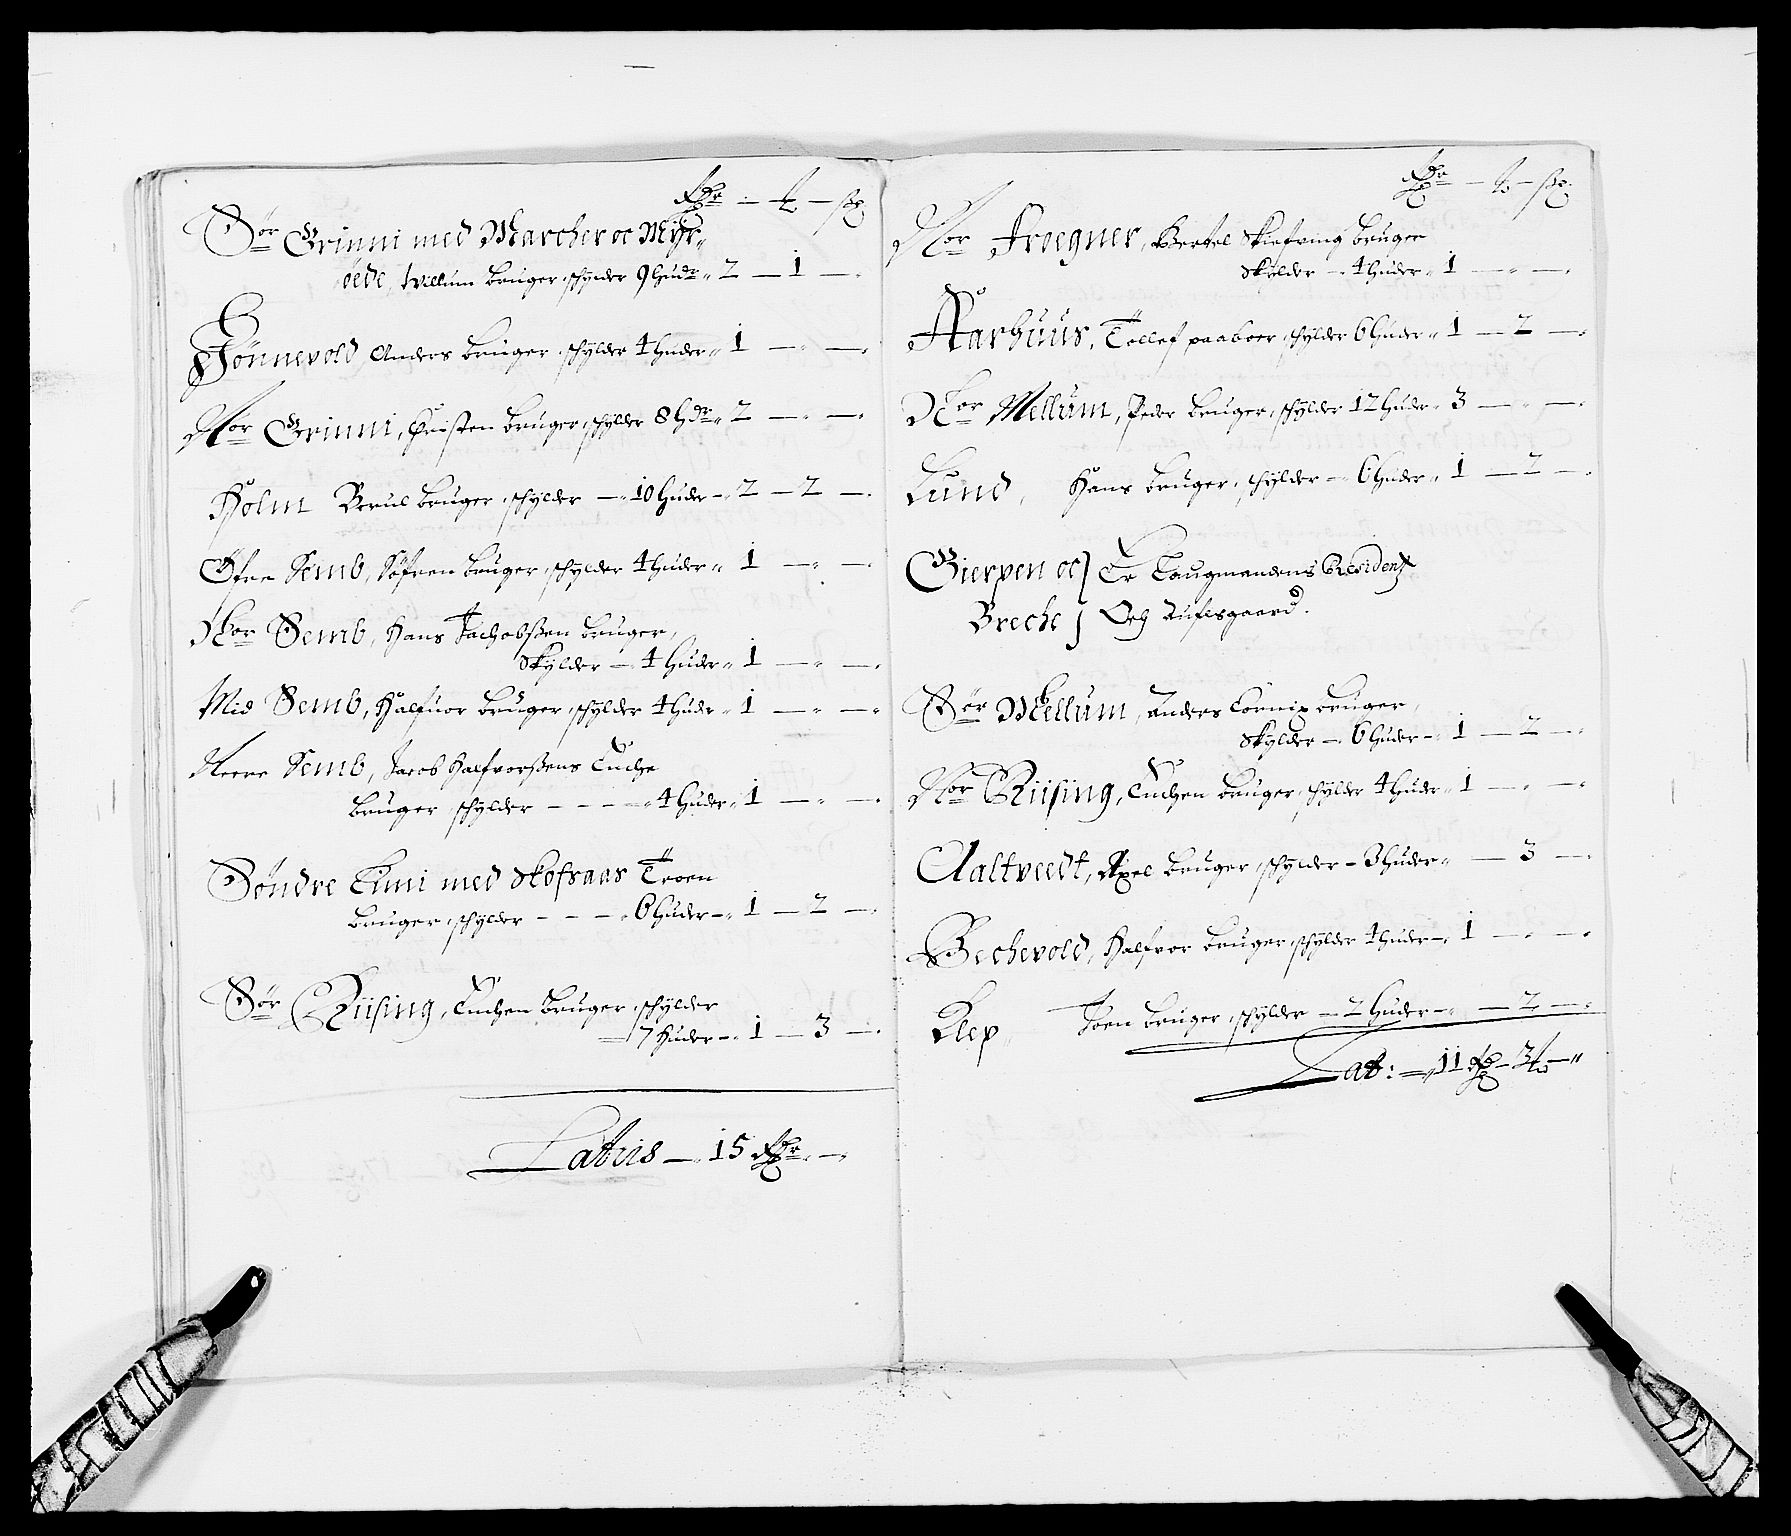 Rdr — ₰ — ss
Sör Grinni med Marcher oc Myr-
öede, Willum bruger, schylder 9 hudr 2 — 1 —
Fönnevold, Anders bruger, schylder 4 huder 1 — „ —
Nor Grinni, Christen bruger, schylder 8 Hdr 2 — „ —
Holm Beruil bruger, schylder — 10 huder — 2 — 2 —
Øfre Semb, Söfren bruger, schylder 4 huder 1 — „ —
Nor Semb, Hans Jachobsßen bruger,
Skylder — 4 huder 1 — „ —
Mid Semb, Halfuor bruger, schylder 4 hudr 1 — „ —
Neere Semb, Jacob Halfvorßens Enche
bruger schylder — — — 4 huder 1 — „ —
Söndre Limi med Skofraas Troen
bruger, schylder — — — 6 huder — 1 — 2 —
Sör Riising, Enchen bruger, schylder
7 Huder — 1 — 3 —
Latus — 15 Rdr —
Rdr — ₰ — ss
Nor Froegner, Bertel Skiefving bruger
Skylder — 4 huder 1 — „ —
Aarhuus, Tollef paaboer, schylder 6 huder 1 — 2 —
Nor Mellum, Peder bruger, schylder 12 hudr 3 — „ —
Lund, Hans bruger, schylder — 6 huder 1 — 2 —
Gierpen oc } Er Laugmandens Residentz
Breche } Och Auflsgaard.
Sör Mellum, Anders Cornix bruger,
Skylder — 6 huder — 1 — 2 —
Nor Riising, Enchen bruger, schylder 4 hudr 1 — „ —
Aaltvedt, Axel bruger, schylder — 3 huder „ — 3 —
Bechevold, Halfvor bruger, schylder 4 hudr — 1 — „ —
Klep, Joen bruger, schylder — 2 huder — „ — 2 —
Lat: — 11 Rdr — 3 ₰ — „